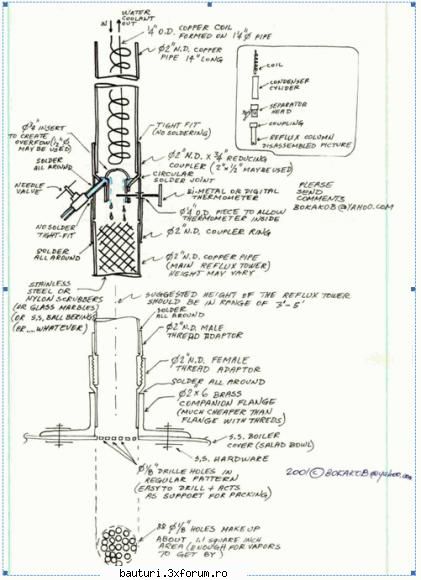 WATER
COOLANT
IN OUT
1/4" O.D. COPPER COIL
FORMED ON 1 1/4"Ø PIPE
Ø2" N.D. COPPER
PIPE 14" LONG
COIL
CONDENSER
CYLIDER
SEPARATOR
HEAD
COUPLING
REFLUX COLUMN
DISASSEMBLED PICTURE
Ø3/4" INSERT
TO CREATE
OVERFLOW (1/2"Ø
MAY BE USED)
SOLDER
ALL AROUND
NEEDLE
VALVE
NO SOLDER
TIGHT-FIT
SOLDER
ALL AROUND
TIGHT FIT
(NO SOLDERING)
Ø2" N.D. x 3/4" REDUCING
COUPLER (2"x 1/2" MAY BE USED)
CIRCULAR
SOLDER JOINT
BI-METAL OR DIGITAL
THERMOMETER
Ø1/4" O.D. PIECE TO ALLOW
THERMOMETER INSIDE
PLEASE
SEND
COMMENTS
BOKAKOB@YAHOO.COM
Ø2" N.D. COUPLER RING
Ø2" N.D. COPPER PIPE
(MAIN REFLUX TOWER)
HEIGHT MAY VARY
STAINLESS
STEEL OR
NYLON SCRUBBERS
(OR GLASS MARBLES)
(OR S.S. BALL BERINGS)
(OR.... WHATEVER)
SUGGESTED HEIGHT OF THE REFLUX TOWER
SHOULD BE IN RANGE OF 3'-5'
SOLDER
ALL AROUND
Ø2" N.D. MALE
THREAD ADAPTOR
Ø2" N.D. FEMALE
THREAD ADAPTOR
SOLDER ALL AROUND
Ø2 x 6 BRASS
COMPANION FLANGE
(MUCH CHEAPER THAN
FLANGE WITH THREDS)
S.S. BOILER
COVER (SALAD BOWL)
S.S. HARDWARE
Ø1/8" DRILLE HOLES IN
REGULAR PATTERN
(EASY TO DRILL + ACTS
AS SUPPORT FOR PACKING)
2001 © BOKAKOB@yahoo.com
88 Ø1/8" HOLES MAKE UP
ABOUT 1.1 SQUARE INCH
AREA (ENOUGH FOR VAPORS
TO GET BY)
bauturi.3xforum.ro